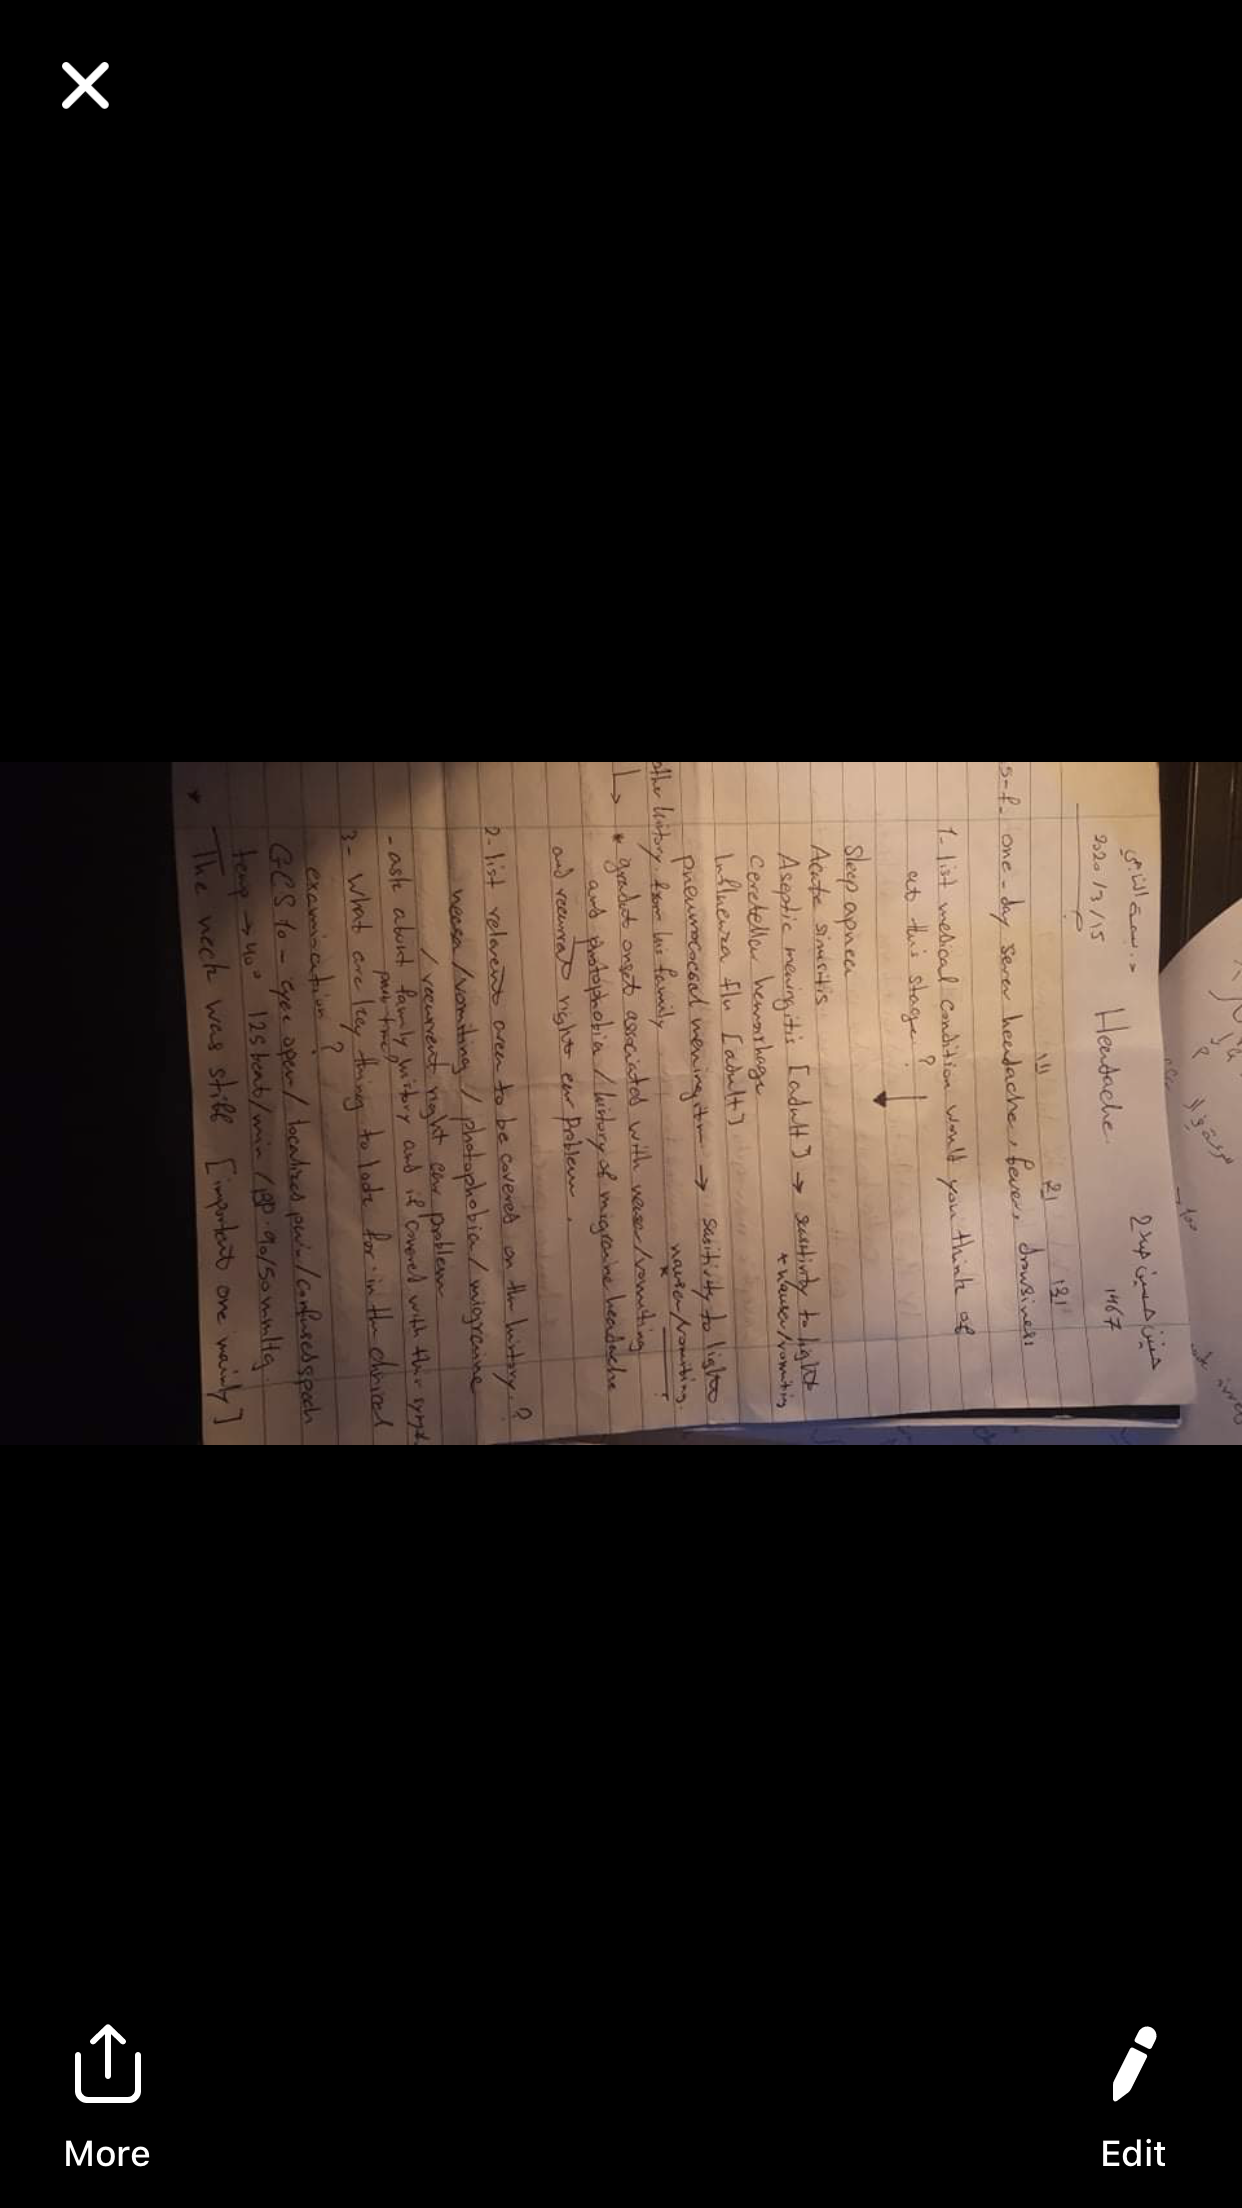 Headache
2020/3/15
1467
s-f- one-day sever headache, fever, drowsiness
1- list medical condition would you think of
at this stage?
Sleep apnea
Acute sinusitis
Aseptic meningitis [adult] → sensitivity to light
+ nausea/vomiting
cerebellar hemorrhage
Influenza flu [adult]
pneumococcal meningitis → sensitivity to light
nausea/vomiting.
other history from his family
* onset associated with nausea/vomiting
and photophobia / history of migraine headache
and recurrent right ear problem.
2- list relevant area to be covered on the history?
nausea/vomiting / photophobia / migraine
/ recurrent right ear problem
- ask about family history and if covered with this
3- What are key thing to look for in the clinical
examination?
GCS to - eyes open / localized pain / confused speech
temp → 40° 125 beat/min / BP. 90/50 mmHg.
* The neck was stiff [important one mainly]
More
Edit